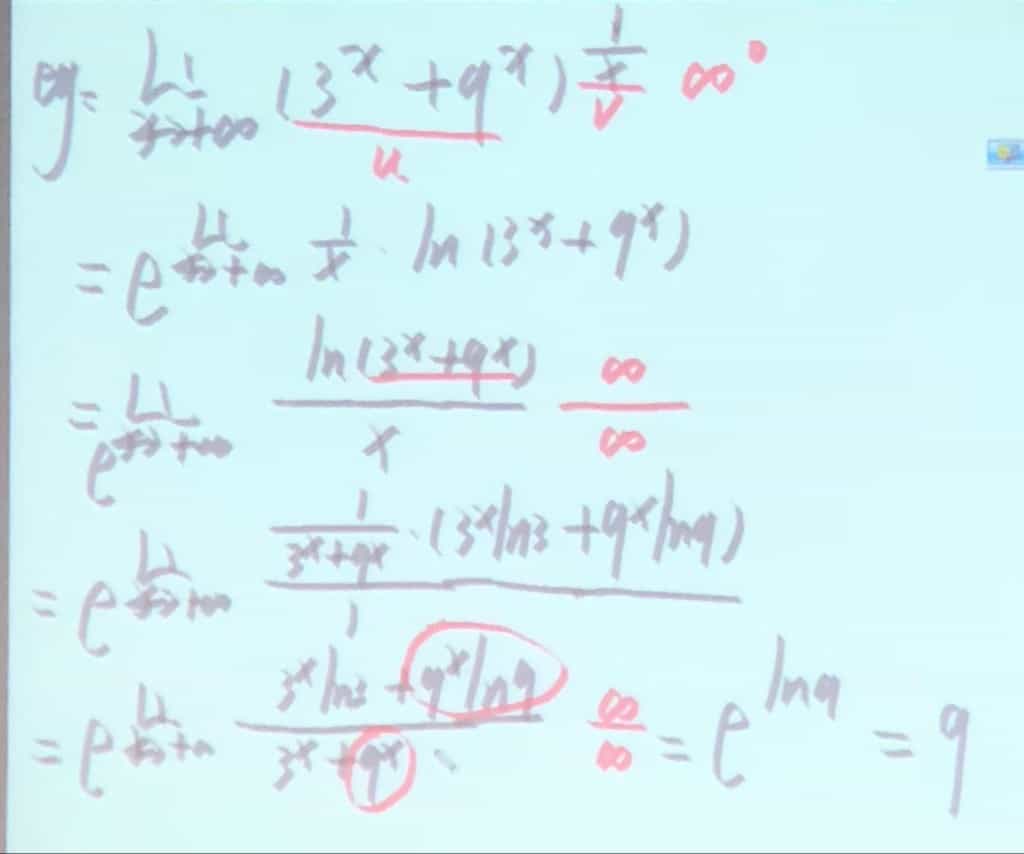 eg. Li x→+∞ (3^x + 9^x)^(1/x) ∞^0
u v
= e^(Li x→+∞ 1/x · ln(3^x + 9^x))
= e^(Li x→+∞ ln(3^x + 9^x) / x) ∞/∞
= e^(Li x→+∞ (1/(3^x + 9^x) · (3^x ln3 + 9^x ln9)) / 1)
= e^(Li x→+∞ (3^x ln3 + 9^x ln9) / (3^x + 9^x)) ∞/∞ = e^(ln9) = 9